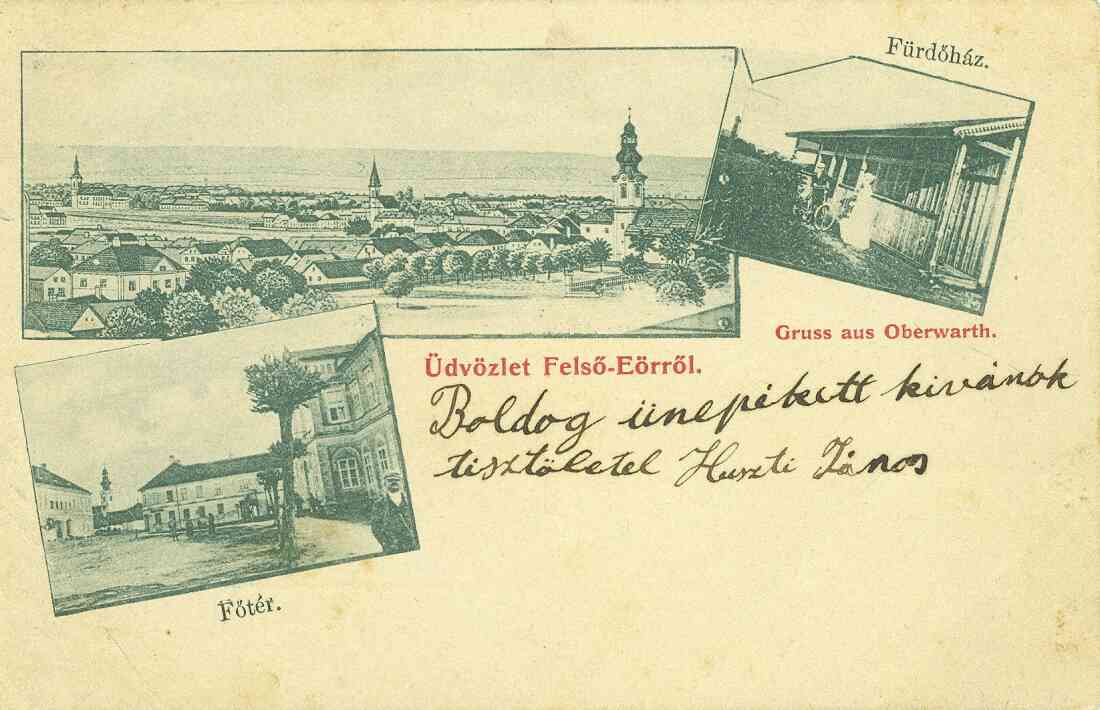 Fürdőház.
Gruss aus Oberwarth.
Üdvözlet Felső-Eörről.
Boldog ünepékett kivánok
tisztöletel Huszti János
Főtér.